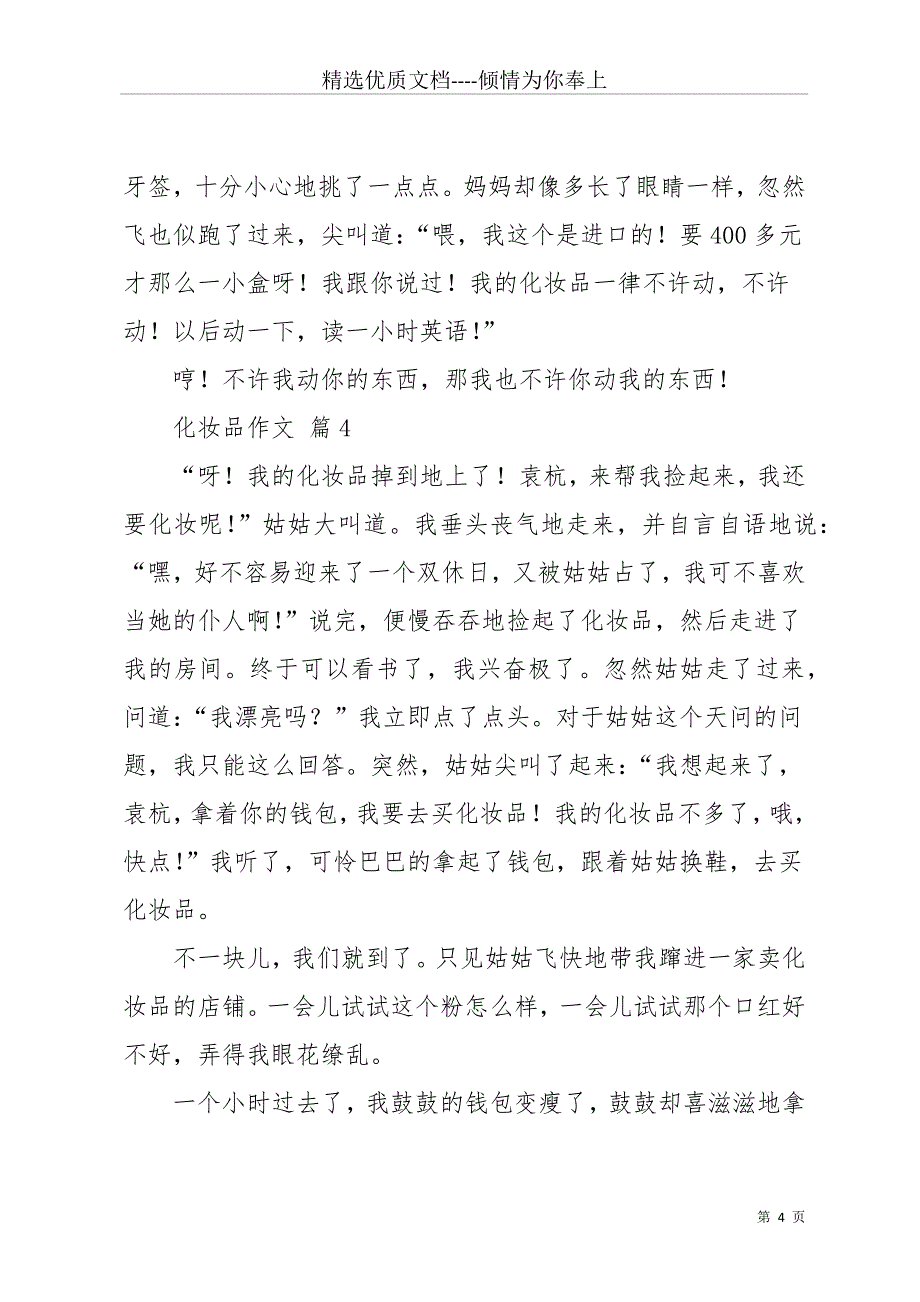 精选优质文档----倾情为你奉上
牙签，十分小心地挑了一点点。妈妈却像多长了眼睛一样，忽然
飞也似跑了过来，尖叫道：“喂，我这个是进口的！要 400 多元
才那么一小盒呀！我跟你说过！我的化妆品一律不许动，不许
动！以后动一下，读一小时英语！”
哼！不许我动你的东西，那我也不许你动我的东西！
化妆品作文 篇 4
“呀！我的化妆品掉到地上了！袁杭，来帮我捡起来，我还
要化妆呢！”姑姑大叫道。我垂头丧气地走来，并自言自语地说：
“嘿，好不容易迎来了一个双休日，又被姑姑占了，我可不喜欢
当她的仆人啊！”说完，便慢吞吞地捡起了化妆品，然后走进了
我的房间。终于可以看书了，我兴奋极了。忽然姑姑走了过来，
问道：“我漂亮吗？”我立即点了点头。对于姑姑这个天问的问
题，我只能这么回答。突然，姑姑尖叫了起来：“我想起来了，
袁杭，拿着你的钱包，我要去买化妆品！我的化妆品不多了，哦，
快点！”我听了，可怜巴巴的拿起了钱包，跟着姑姑换鞋，去买
化妆品。
不一块儿，我们就到了。只见姑姑飞快地带我蹿进一家卖化
妆品的店铺。一会儿试试这个粉怎么样，一会儿试试那个口红好
不好，弄得我眼花缭乱。
一个小时过去了，我鼓鼓的钱包变瘦了，鼓鼓却喜滋滋地拿
第 4 页